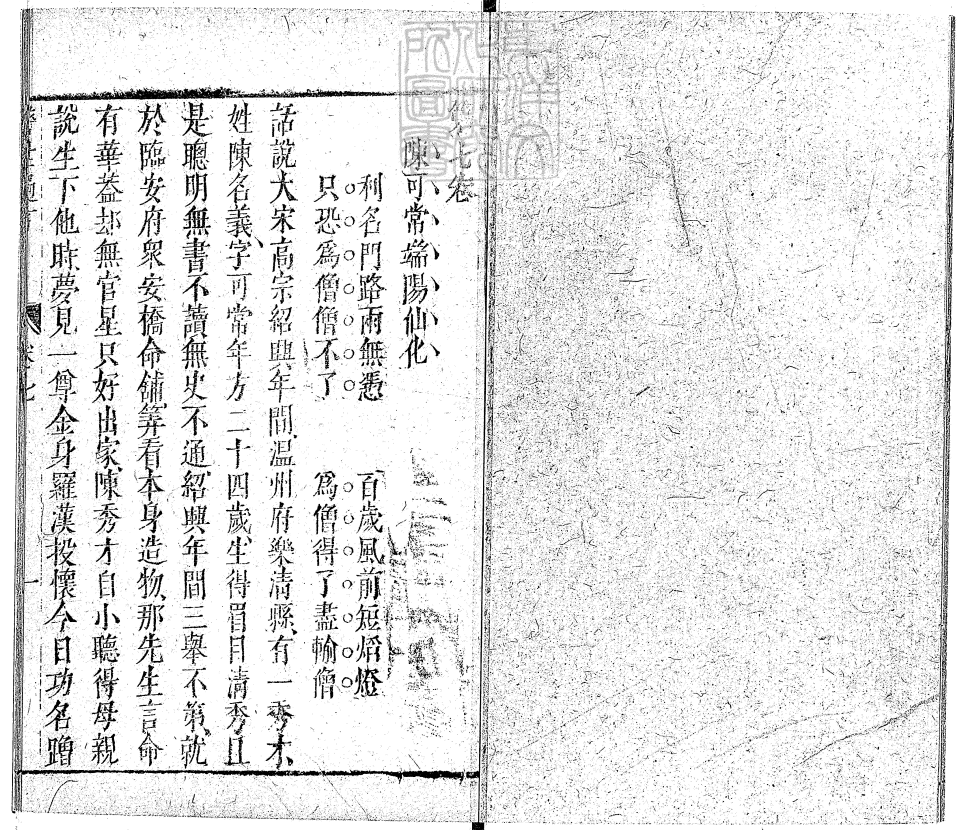 第七卷
陳可常端陽仙化
利名門路兩無憑　百歲風前短焰燈
只恐爲僧僧不了　爲僧得了盡輸僧
話說大宋高宗紹興年間温州府樂清縣有一秀才
姓陳名義字可常年方二十四歲生得眉目清秀且
是聰明無書不讀無史不通紹興年間三舉不第就
於臨安府衆安橋命舖筭看本身造物那先生言命
有華蓋却無官星只好出家陳秀才自小聽得母親
說生下他時夢見一尊金身羅漢投懷今日功名蹭
警世通言　卷七　一